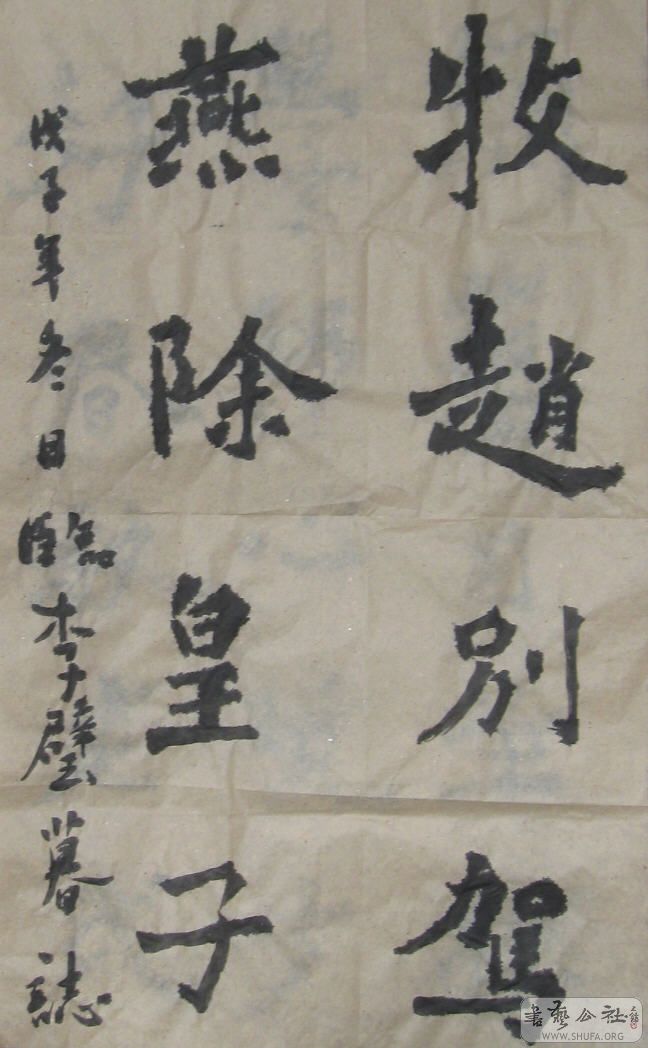 牧趙別駕
燕除皇子
戊子年冬日臨李璧暮誌
書藝公社
WWW.SHUFA.ORG